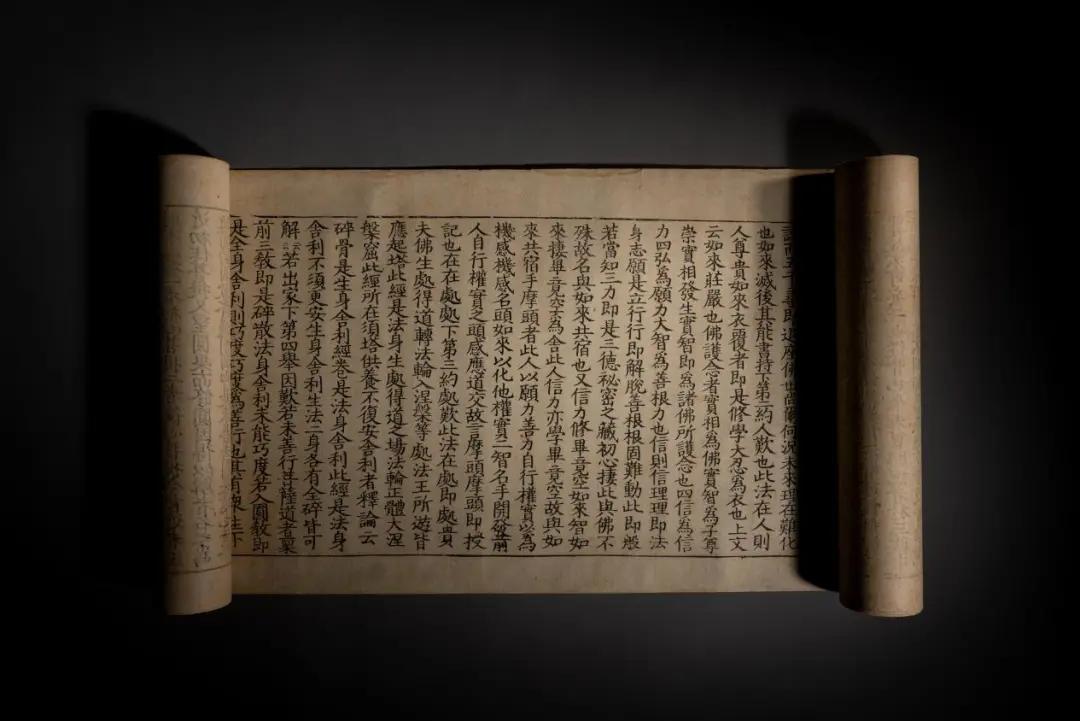 即退席佛世尚爾何況未來理在難化
也如來滅後其能書持下第二約人歎也此法在人則
人尊貴如來衣覆者即是修學大忍為衣也上文
云如來莊嚴也佛護念者實相為佛實智為子尊
崇實相發生實智即為諸佛所護念也四信為信
力四弘為願力大智為善根力也信則信理理即法
身志願是立行行即解脫善根根固難動此即般
若當知三力即是三德祕密之藏初心棲此與佛不
殊故名與如來共宿也又信力修畢竟空如來智如
來棲畢竟空為舍此人信力亦學畢竟空故與如
來共宿手摩頭者此人以願力善力自行權實以為
機感機感名頭如來以化他權實二智名手開發前
人自行權實之頭感應道交故言摩頭摩頭即授
記也在在處處下第三約處歎此法在處即處貴
夫佛生處得道轉法輪入涅槃等處法王所遊皆
應起塔此經是法身生處得道之場法輪正體大涅
槃窟此經所在須塔供養不復安舍利者釋論云
碎骨是生身舍利經卷是法身舍利此經是法身
舍利不須更安生身舍利生法二身各有全碎皆可
解云云若出家下第四舉因歎若未善行菩薩道者稟
前三教即是碎散法身舍利未能巧度若入圓教即
是全身舍利則巧度巧度為善行也其有眾生下